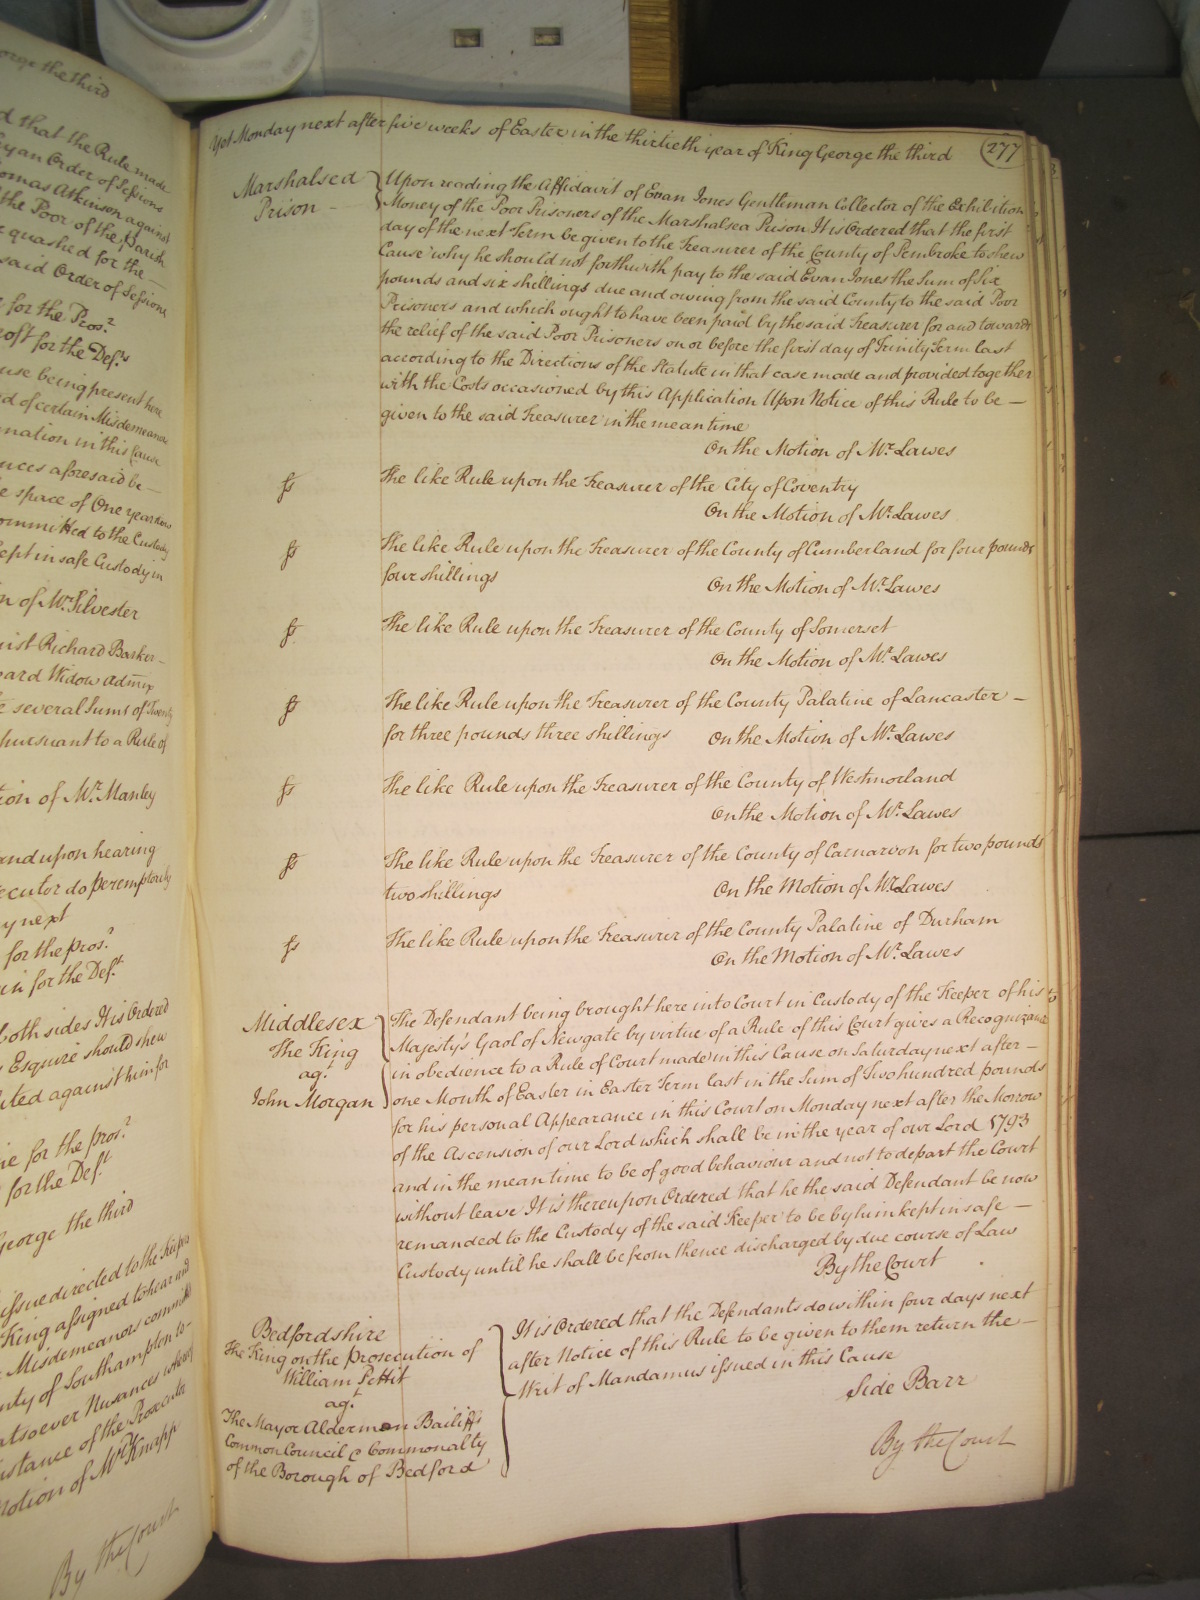 orge the third
d that the Rule made
by an Order of Sessions
omas Atkinson against
the Poor of the Parish
e quashed for the
said Order of Sessions
for the Pros.r
oft for the Def.ts
use being present here
d of certain Misdemeanors
mation in this Cause
nces aforesaid be —
e space of One year now
ommitted to the Custody
kept in safe Custody in
n of Mr. Silvester
inst Richard Barker —
ard Widow Admix
e several Sums of Twenty
pursuant to a Rule of
tion of Mr. Manley
and upon hearing
ecutor do peremptorily
y next
for the pros.r
in for the Def.t
both sides It is Ordered
Esquire should shew
ited against him for
ie for the pros.r
for the Def.t
George the third
issue directed to the Keepers
King assigned to hear and
Misdemeanors committed
nty of Southampton to —
atsoever Nusances
instance of the Prosecutor
Motion of Mr. Knapp
By the Court
Yet Monday next after five weeks of Easter in the thirtieth year of King George the third
277
Marshalsea
Prison —
Upon reading the Affidavit of Evan Jones Gentleman Collector of the Exhibition
Money of the Poor Prisoners of the Marshalsea Prison It is Ordered that the first
day of the next Term be given to the Treasurer of the County of Pembroke to shew
Cause why he should not forthwith pay to the said Evan Jones the Sum of Six
pounds and six shillings due and owing from the said County to the said Poor
Prisoners and which ought to have been paid by the said Treasurer for and towards
the relief of the said Poor Prisoners on or before the first day of Trinity Term last
according to the Directions of the Statute in that case made and provided together
with the Costs occasioned by this Application Upon Notice of this Rule to be —
given to the said Treasurer in the mean time
On the Motion of Mr. Lawes
fs The like Rule upon the Treasurer of the City of Coventry
On the Motion of Mr. Lawes
fs The like Rule upon the Treasurer of the County of Cumberland for four pounds
four shillings On the Motion of Mr. Lawes
fs The like Rule upon the Treasurer of the County of Somerset
On the Motion of Mr. Lawes
fs The like Rule upon the Treasurer of the County Palatine of Lancaster —
for three pounds three shillings On the Motion of Mr. Lawes
fs The like Rule upon the Treasurer of the County of Westmorland
On the Motion of Mr. Lawes
fs The like Rule upon the Treasurer of the County of Carnarvon for two pounds
two shillings On the Motion of Mr. Lawes
fs The like Rule upon the Treasurer of the County Palatine of Durham
On the Motion of Mr. Lawes
Middlesex
The King
ag.t
John Morgan
The Defendant being brought here into Court in Custody of the Keeper of his
Majesty's Gaol of Newgate by virtue of a Rule of this Court gives a Recognizance
in obedience to a Rule of Court made in this Cause on Saturday next after —
one Month of Easter in Easter Term last in the Sum of Two hundred pounds
for his personal Appearance in this Court on Monday next after the Morrow
of the Ascension of our Lord which shall be in the year of our Lord 1793
and in the mean time to be of good behaviour and not to depart the Court
without leave It is thereupon Ordered that he the said Defendant be now
remanded to the Custody of the said Keeper to be by him kept in safe —
Custody until he shall be from thence discharged by due course of Law
By the Court
Bedfordshire
The King on the Prosecution of
William Pettit
ag.t
The Mayor Aldermen Bailiffs
Common Council & Commonalty
of the Borough of Bedford
It is Ordered that the Defendants do within four days next
after Notice of this Rule to be given to them return the —
Writ of Mandamus issued in this Cause
Side Barr
By the Court